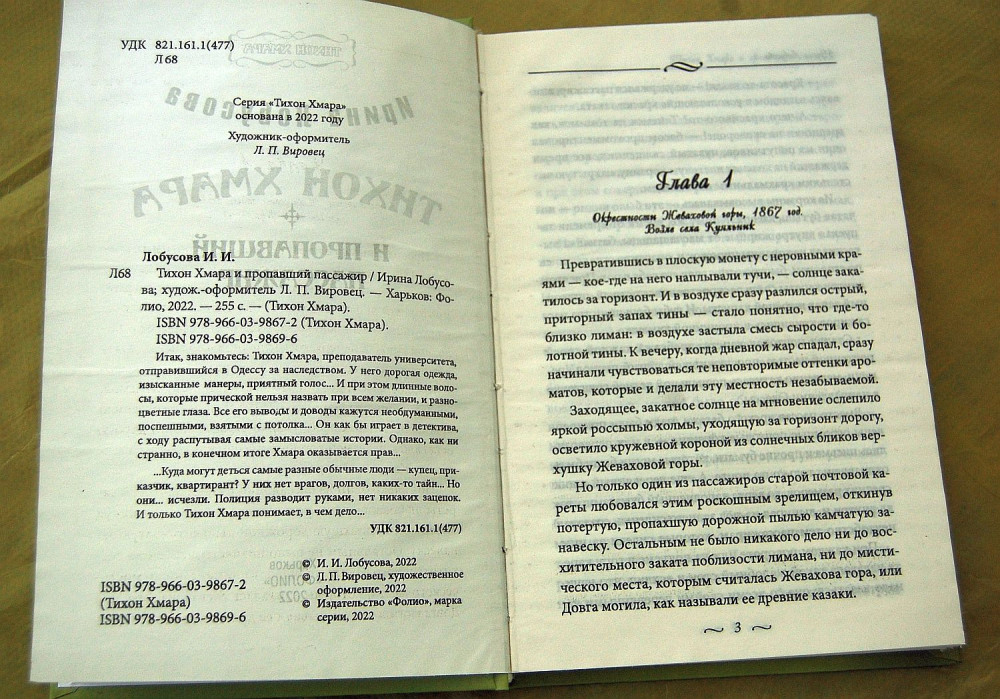 УДК 821.161.1(477)
Л68
Серия «Тихон Хмара»
основана в 2022 году
Художник-оформитель
Л. П. Вировец
Лобусова И. И.
Л68 Тихон Хмара и пропавший пассажир / Ирина Лобусо-
ва; худож.-оформитель Л. П. Вировец. — Харьков: Фо-
лио, 2022. — 255 с. — (Тихон Хмара).
ISBN 978-966-03-9867-2 (Тихон Хмара).
ISBN 978-966-03-9869-6
Итак, знакомьтесь: Тихон Хмара, преподаватель университета,
отправившийся в Одессу за наследством. У него дорогая одежда,
изысканные манеры, приятный голос... И при этом длинные воло-
сы, которые прической нельзя назвать при всем желании, и разно-
цветные глаза. Все его выводы и доводы кажутся необдуманными,
поспешными, взятыми с потолка... Он как бы играет в детектива,
с ходу распутывая самые замысловатые истории. Однако, как ни
странно, в конечном итоге Хмара оказывается прав...
...Куда могут деться самые разные обычные люди — купец, при-
казчик, квартирант? У них нет врагов, долгов, каких-то тайн... Но
они... исчезли. Полиция разводит руками, нет никаких зацепок.
И только Тихон Хмара понимает, в чем дело...
УДК 821.161.1(477)
ISBN 978-966-03-9867-2
(Тихон Хмара)
ISBN 978-966-03-9869-6
© И. И. Лобусова, 2022
© Л. П. Вировец, художественное
оформление, 2022
© Издательство «Фолио», марка
серии, 2022
Глава 1
Окрестности Жеваховой горы, 1867 год.
Возле села Куяльник
Превратившись в плоскую монету с неровными кра-
ями — кое-где на него наплывали тучи, — солнце зака-
тилось за горизонт. И в воздухе сразу разлился острый,
приторный запах тины — стало понятно, что где-то
близко лиман: в воздухе застыла смесь сырости и бо-
лотной тины. К вечеру, когда дневной жар спадал, сразу
начинали чувствоваться те неповторимые оттенки аро-
матов, которые и делали эту местность незабываемой.
Заходящее, закатное солнце на мгновение ослепило
яркой россыпью холмы, уходящую за горизонт дорогу,
осветило кружевной короной из солнечных бликов вер-
хушку Жеваховой горы.
Но только один из пассажиров старой почтовой ка-
реты любовался этим роскошным зрелищем, откинув
потертую, пропахшую дорожной пылью камчатую за-
навеску. Остальным не было никакого дело ни до вос-
хитительного заката поблизости лимана, ни до мисти-
ческого места, которым считалась Жевахова гора, или
Довга могила, как называли ее древние казаки.
3